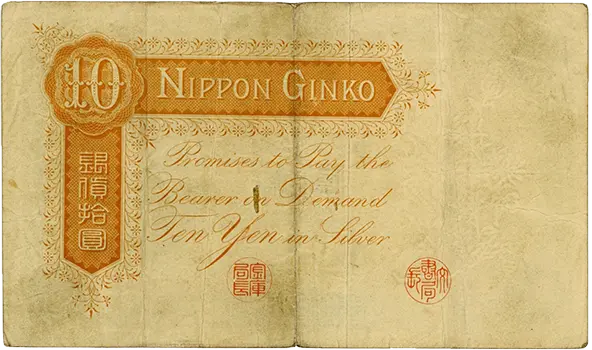 10
NIPPON GINKO
銀貨拾圓
Promises to Pay the
Bearer on Demand
Ten Yen in Silver
金庫局長
文書局長